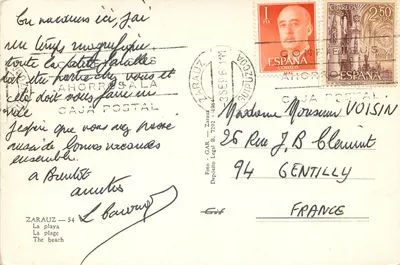 vacances ici, j'ai
un temps magnifique.
toute la petite famille
doit être partie chez vous et
cela doit vous faire un
vide
J'espère que vous avez passé
aussi de bonnes vacances
ensemble.
à Bientôt
amitiés
ZARAUZ - 34
La playa
La plage
The beach
Foto - GAR. - Zarauz
Depósito Legal B.
AHORROS A LA
CAJA POSTAL
ZARAUZ
GUIPUZCOA
1 PTA
ESPAÑA
CORREOS
2,50
ESPAÑA
CON
AHORR
CAJA POSTAL
Madame Monsieur VOISIN
26 Rue J, B Clément
94 GENTILLY
FRANCE